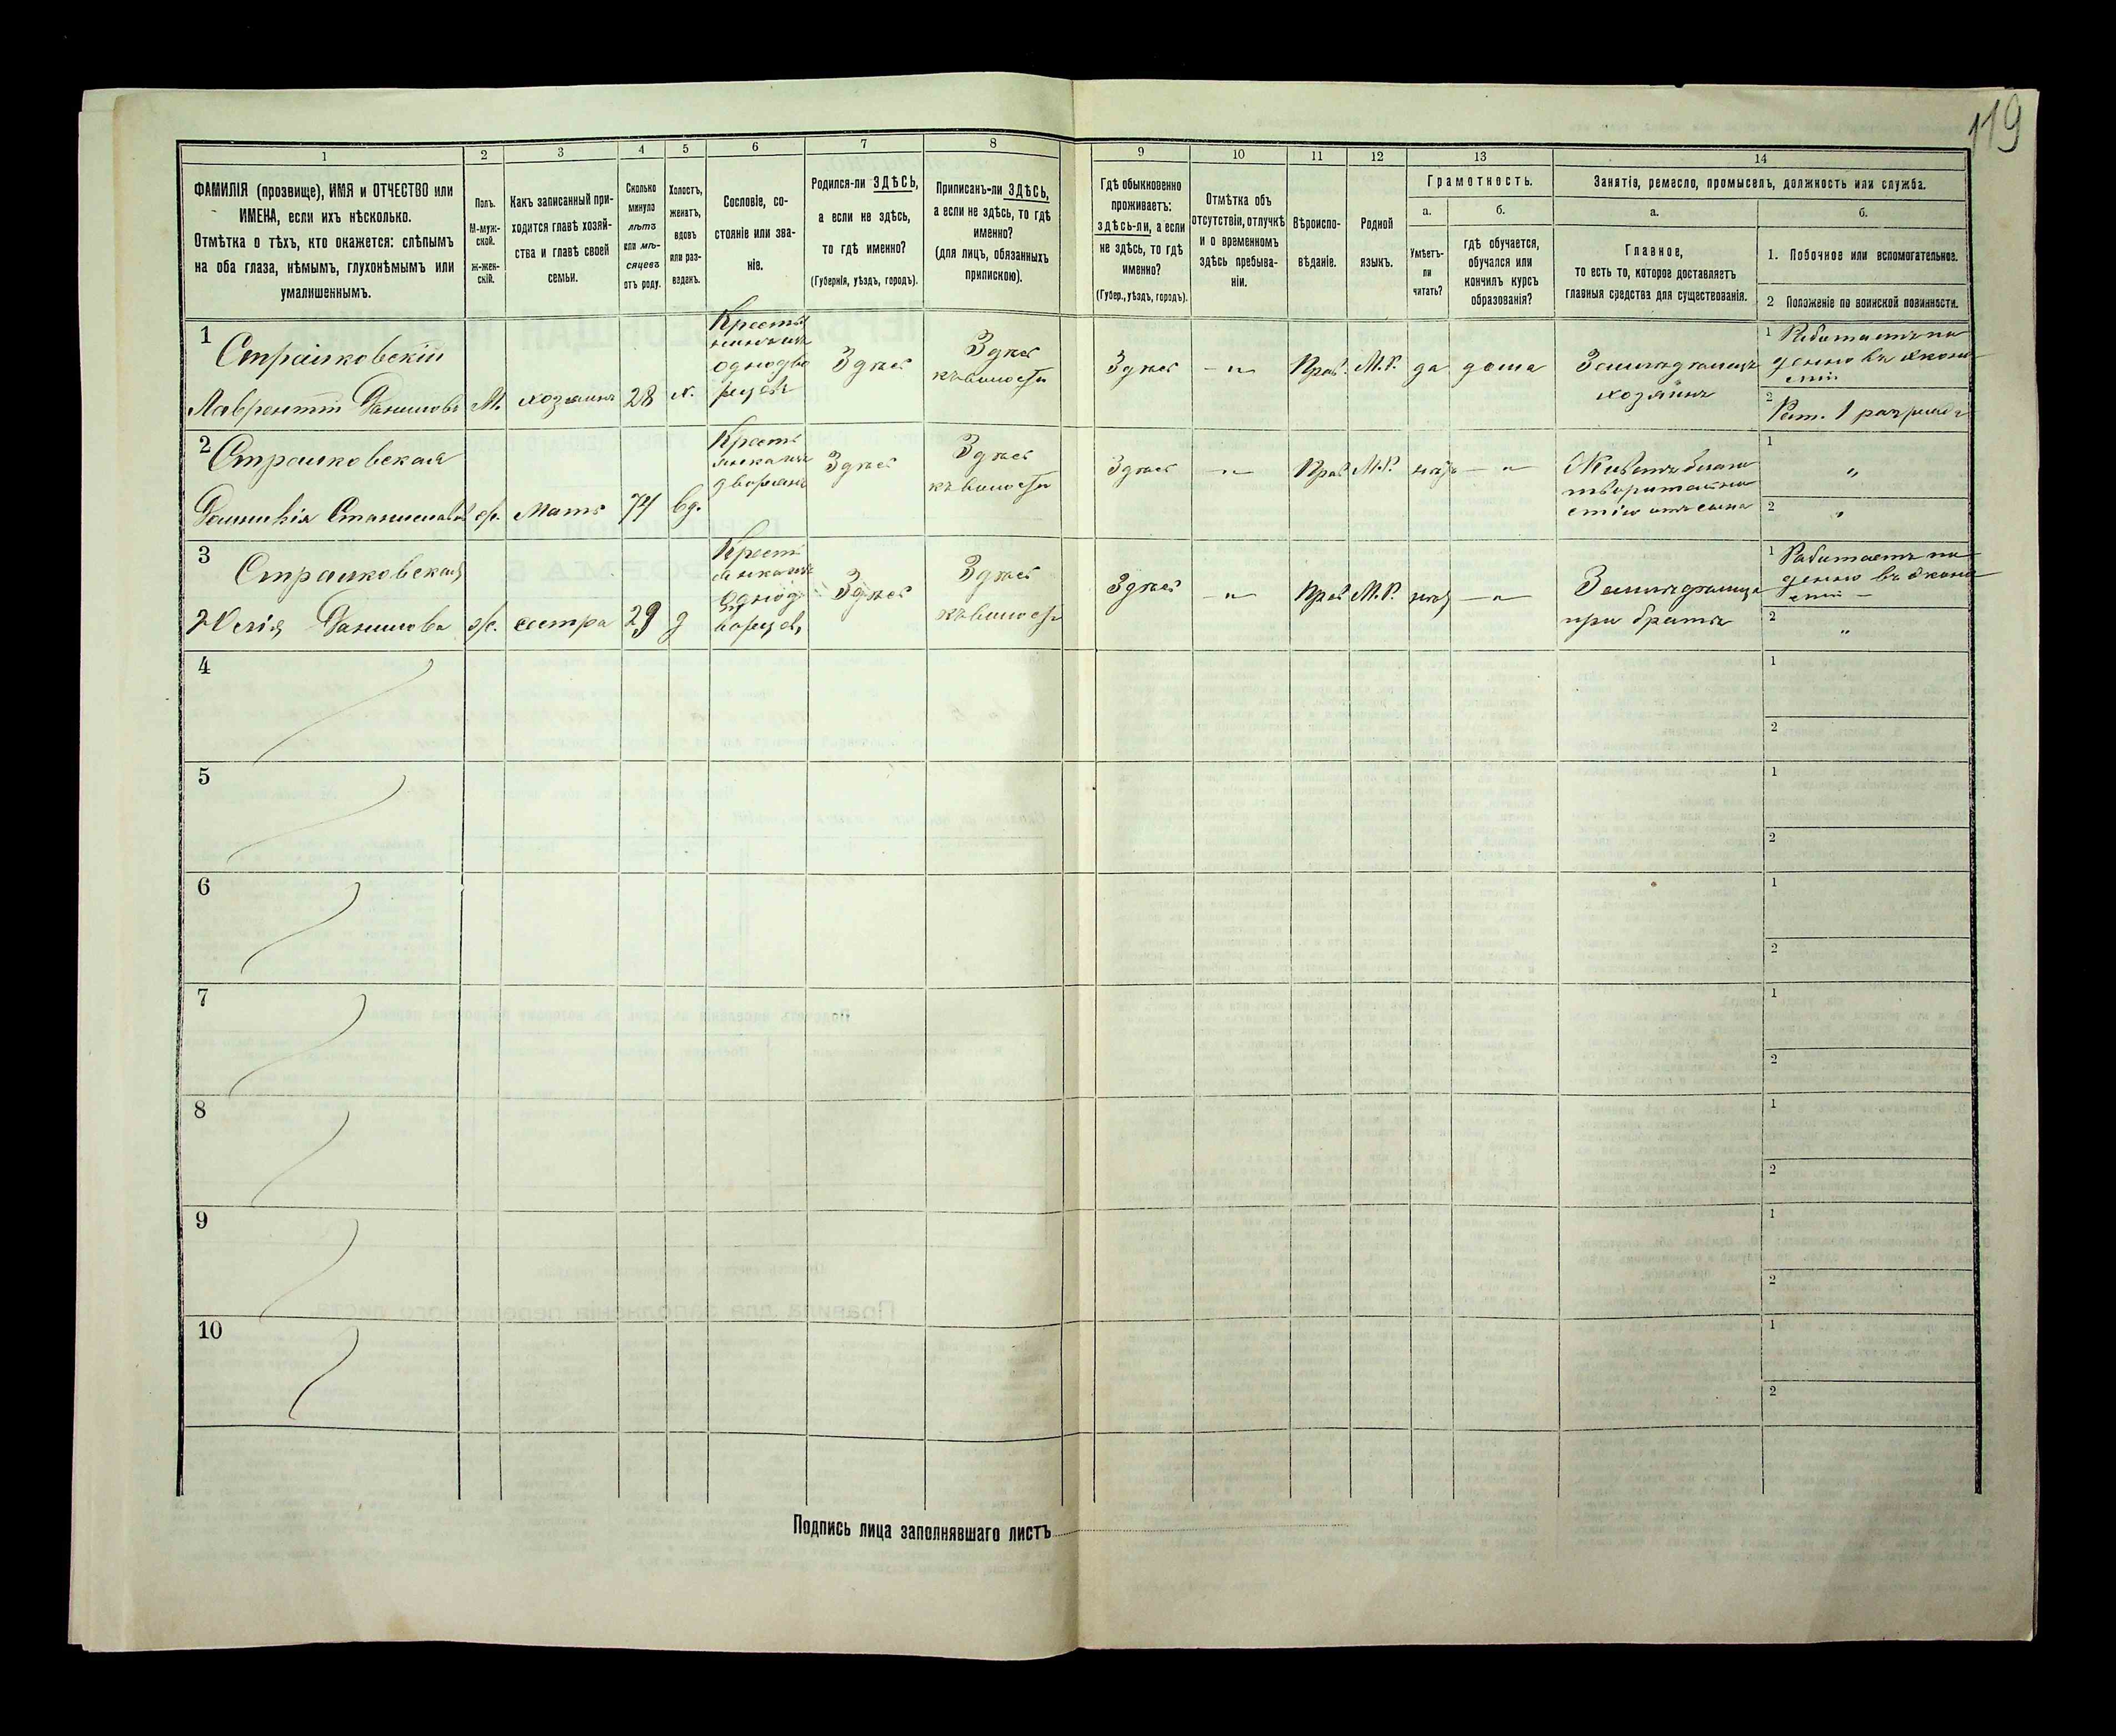 119
1 2 3 4 5 6 7 8 9 10 11 12 13 14
ФАМИЛІЯ (прозвище), ИМЯ и ОТЧЕСТВО или
ИМЕНА, если ихъ нѣсколько.
Отмѣтка о тѣхъ, кто окажется: слѣпымъ
на оба глаза, нѣмымъ, глухонѣмымъ или
умалишеннымъ.
Полъ.
М-муж-
ской.
ж-жен-
скій.
Какъ записанный при-
ходится главѣ хозяй-
ства и главѣ своей
семьи.
Сколько
минуло
лѣтъ
или мѣ-
сяцевъ
отъ роду.
Холостъ,
женатъ,
вдовъ
или раз-
веденъ.
Сословіе, со-
стояніе или зва-
ніе.
Родился-ли ЗДѢСЬ,
а если не здѣсь,
то гдѣ именно?
(Губернія, уѣздъ, городъ).
Приписанъ-ли ЗДѢСЬ,
а если не здѣсь, то гдѣ
именно?
(для лицъ, обязанныхъ
припискою).
Гдѣ обыкновенно
проживаетъ:
ЗДѢСЬ-ли, а если
не здѣсь, то гдѣ
именно?
(Губер., уѣздъ, городъ).
Отмѣтка объ
отсутствіи, отлучкѣ
и о временномъ
здѣсь пребыва-
ніи.
Вѣроиспо-
вѣданіе.
Родной
языкъ.
Грамотность.
а.
Умѣетъ-
ли
читать?
б.
гдѣ обучается,
обучался или
кончилъ курсъ
образованія?
Занятіе, ремесло, промыселъ, должность или служба.
а.
Главное,
то есть то, которое доставляетъ
главныя средства для существованія.
б.
1. Побочное или вспомогательное.
2 Положеніе по воинской повинности.
1
Страшковскій
Лаврентій Даниловъ
М.
хозяинъ
28
х.
Кресть
однодво
Здѣсь
Здѣсь
къ волости
Здѣсь
— „ —
Прав.
М.Р.
да
дома
Земледѣлецъ
хозяинъ
1 Работаетъ по
денно въ эконо
міи
2 Рат. 1 разряда
2
Страшковская
Доминикія Станиславов
ж.
Мать
74
вд.
Кресть
янка изъ
дворянъ
Здѣсь
Здѣсь
къ волости
Здѣсь
— „ —
Прав
М.Р.
— „ —
Живетъ благо
творительно
стію отъ сына
1
„
2
„
3
Страшковская
Юлія Данилова
ж.
сестра
29
д
Кресть
янка изъ
однод
ворцев
Здѣсь
Здѣсь
къ волости
Здѣсь
— „ —
Прав
М.Р.
— „ —
Земледѣлица
при братѣ
1 Работаетъ по
денно въ эконо
міи —
2
„
4
1
2
5
1
2
6
1
2
7
1
2
8
1
2
9
1
2
10
1
2
Подпись лица заполнявшаго листъ